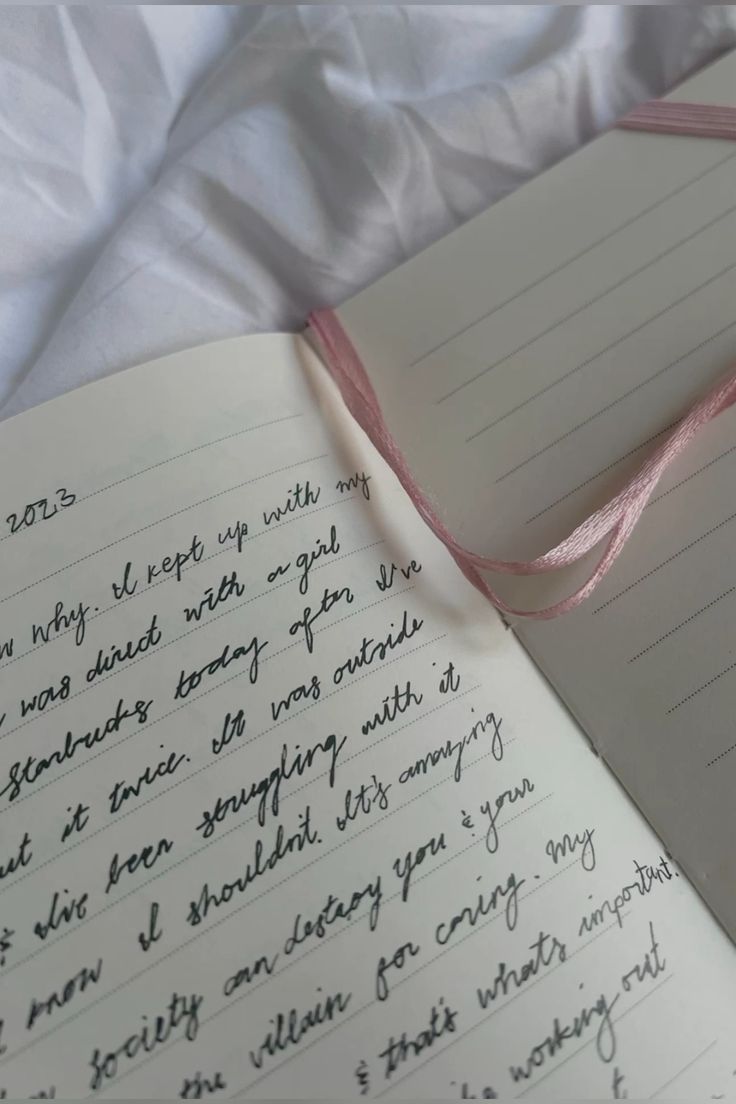 2023
why. I kept up with my
was direct with a girl
Starbucks today after I've
it twice. It was outside
& I've been struggling with it
know I shouldn't. It's amazing
society can destroy you & your
the villain for caring. My
& that's whats important.
working out